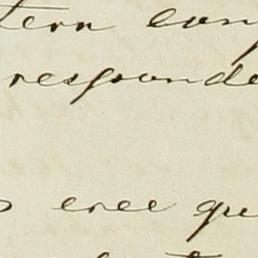 tern con
responde
cree qu